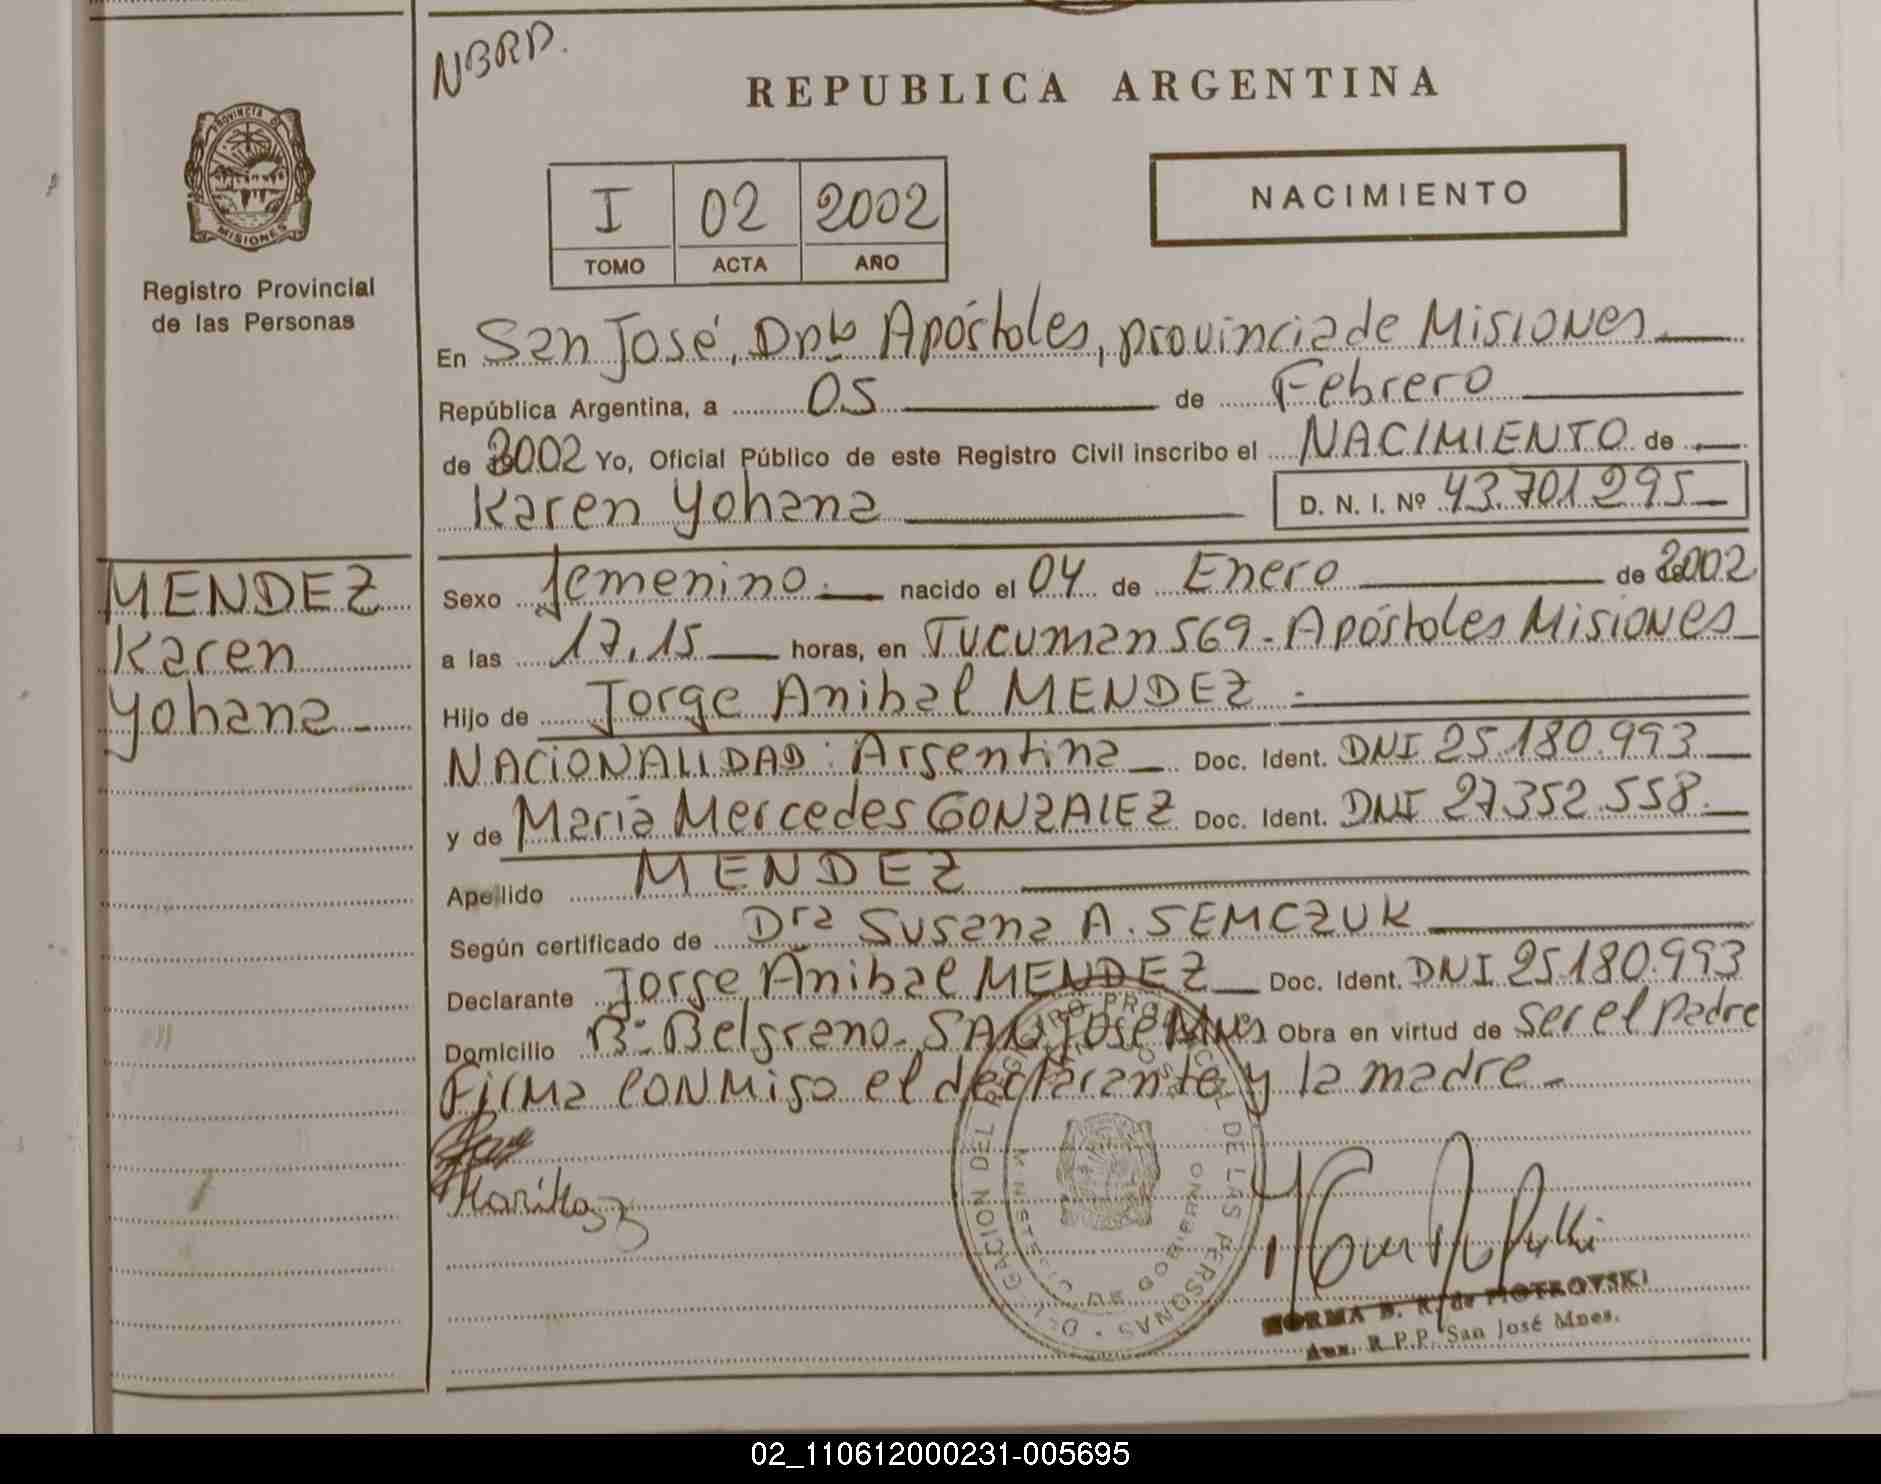 NBRD.
REPUBLICA ARGENTINA
PROVINCIA DE
MISIONES
Registro Provincial
de las Personas
I 02 2002
TOMO ACTA AÑO
NACIMIENTO
En San José, Dpto Apóstoles, provincia de Misiones
República Argentina, a 05 de Febrero
de 2002 Yo, Oficial Público de este Registro Civil inscribo el NACIMIENTO de
Karen Yohana D. N. I. Nº 43.701.295
MENDEZ
Karen
Yohana
Sexo femenino. nacido el 04 de Enero de 2002
a las 17,15 horas, en Tucuman 569 - Apóstoles Misiones
Hijo de Jorge Anibal MENDEZ.
NACIONALIDAD: Argentina Doc. Ident. DNI 25.180.993
y de María Mercedes GONZALEZ Doc. Ident. DNI 27.352.558.
Apellido MENDEZ
Según certificado de Dra Susana A. SEMCZUK
Declarante Jorge Anibal MENDEZ Doc. Ident. DNI 25.180.993
Domicilio Bº Belgrano - SAN José Mnes Obra en virtud de ser el padre
Firma conmigo el declarante y la madre -
DELEGACION DEL REGISTRO PROVINCIAL DE LAS PERSONAS
MINISTERIO DE GOBIERNO
SAN JOSE
NORMA B. R. de PIOTROVSKI
Aux. R.P.P. San José Mnes.
02_110612000231-005695